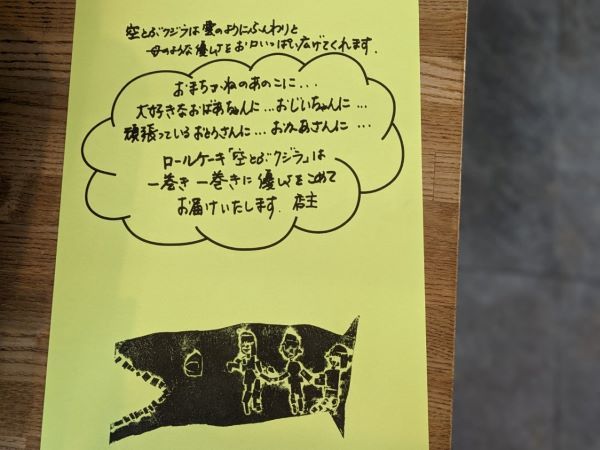 空とぶクジラは雲のようにふんわりと
母のような優しさをお口いっぱい広げてくれます.
おまちかねのあのこに...
大好きなおばあちゃんに...おじいちゃんに...
頑張っているおとうさんに...おかあさんに...
ロールケーキ「空とぶクジラ」は
一巻き一巻きに優しさをこめて
お届けいたします. 店主